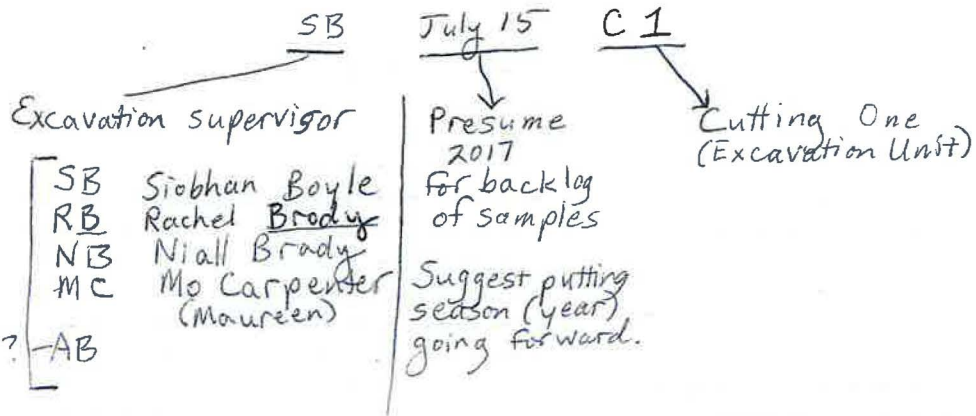 SB July 15 C1
Excavation supervisor
SB Siobhan Boyle
RB Rachel Brody
NB Niall Brady
MC Mo Carpenter
(Maureen)
? AB
Presume
2017
for backlog
of samples
Suggest putting
season (year)
going forward.
Cutting One
(Excavation Unit)